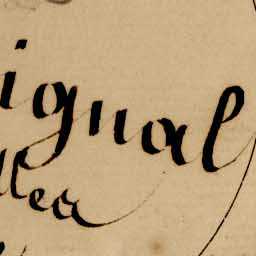 ignal
lea